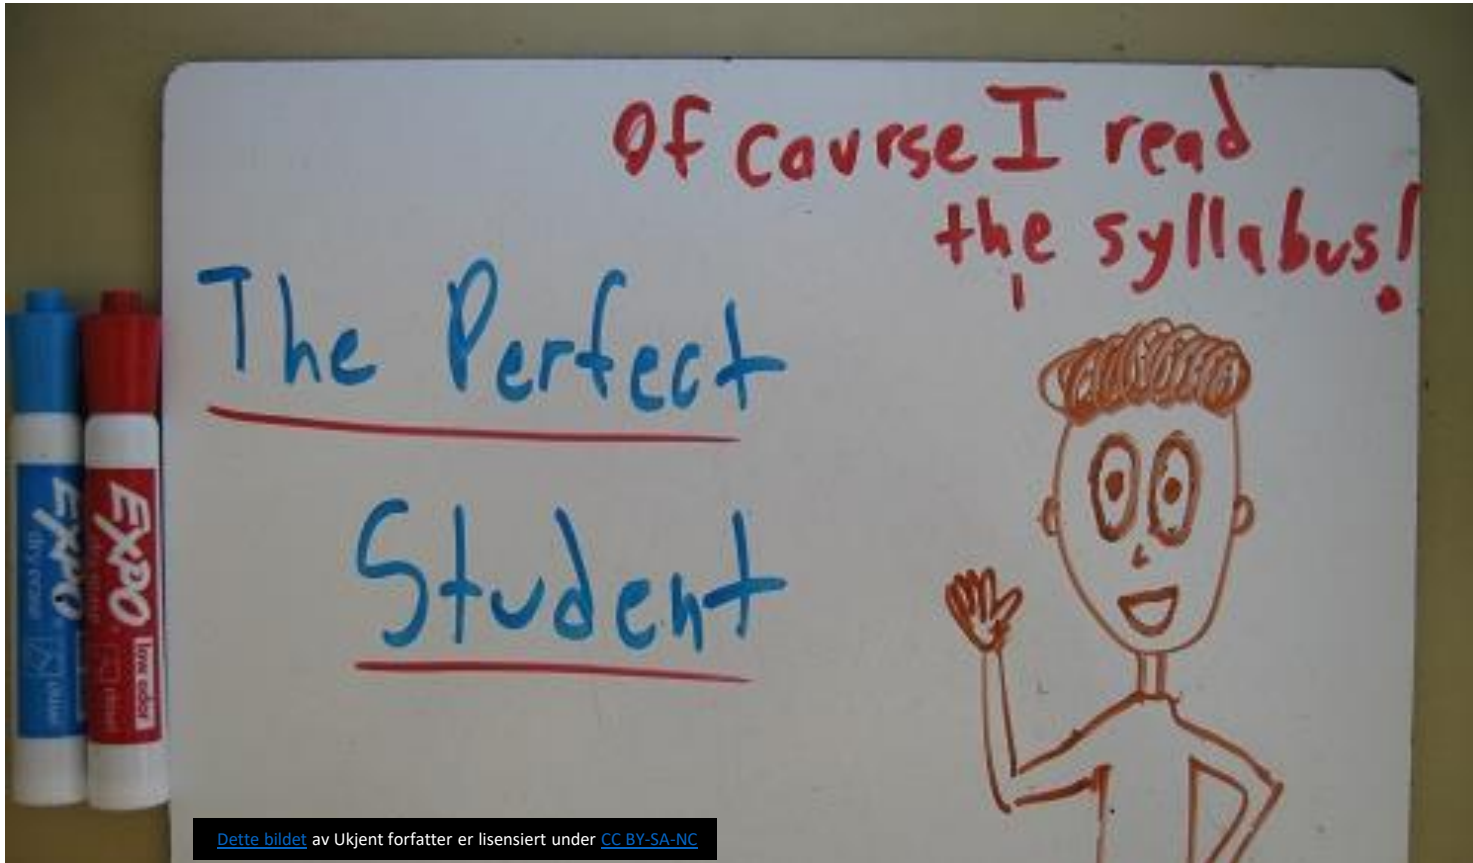 Of course I read
the syllabus!
The Perfect
Student
EXPO
EXPO
low odor
Dette bildet av Ukjent forfatter er lisensiert under CC BY-SA-NC